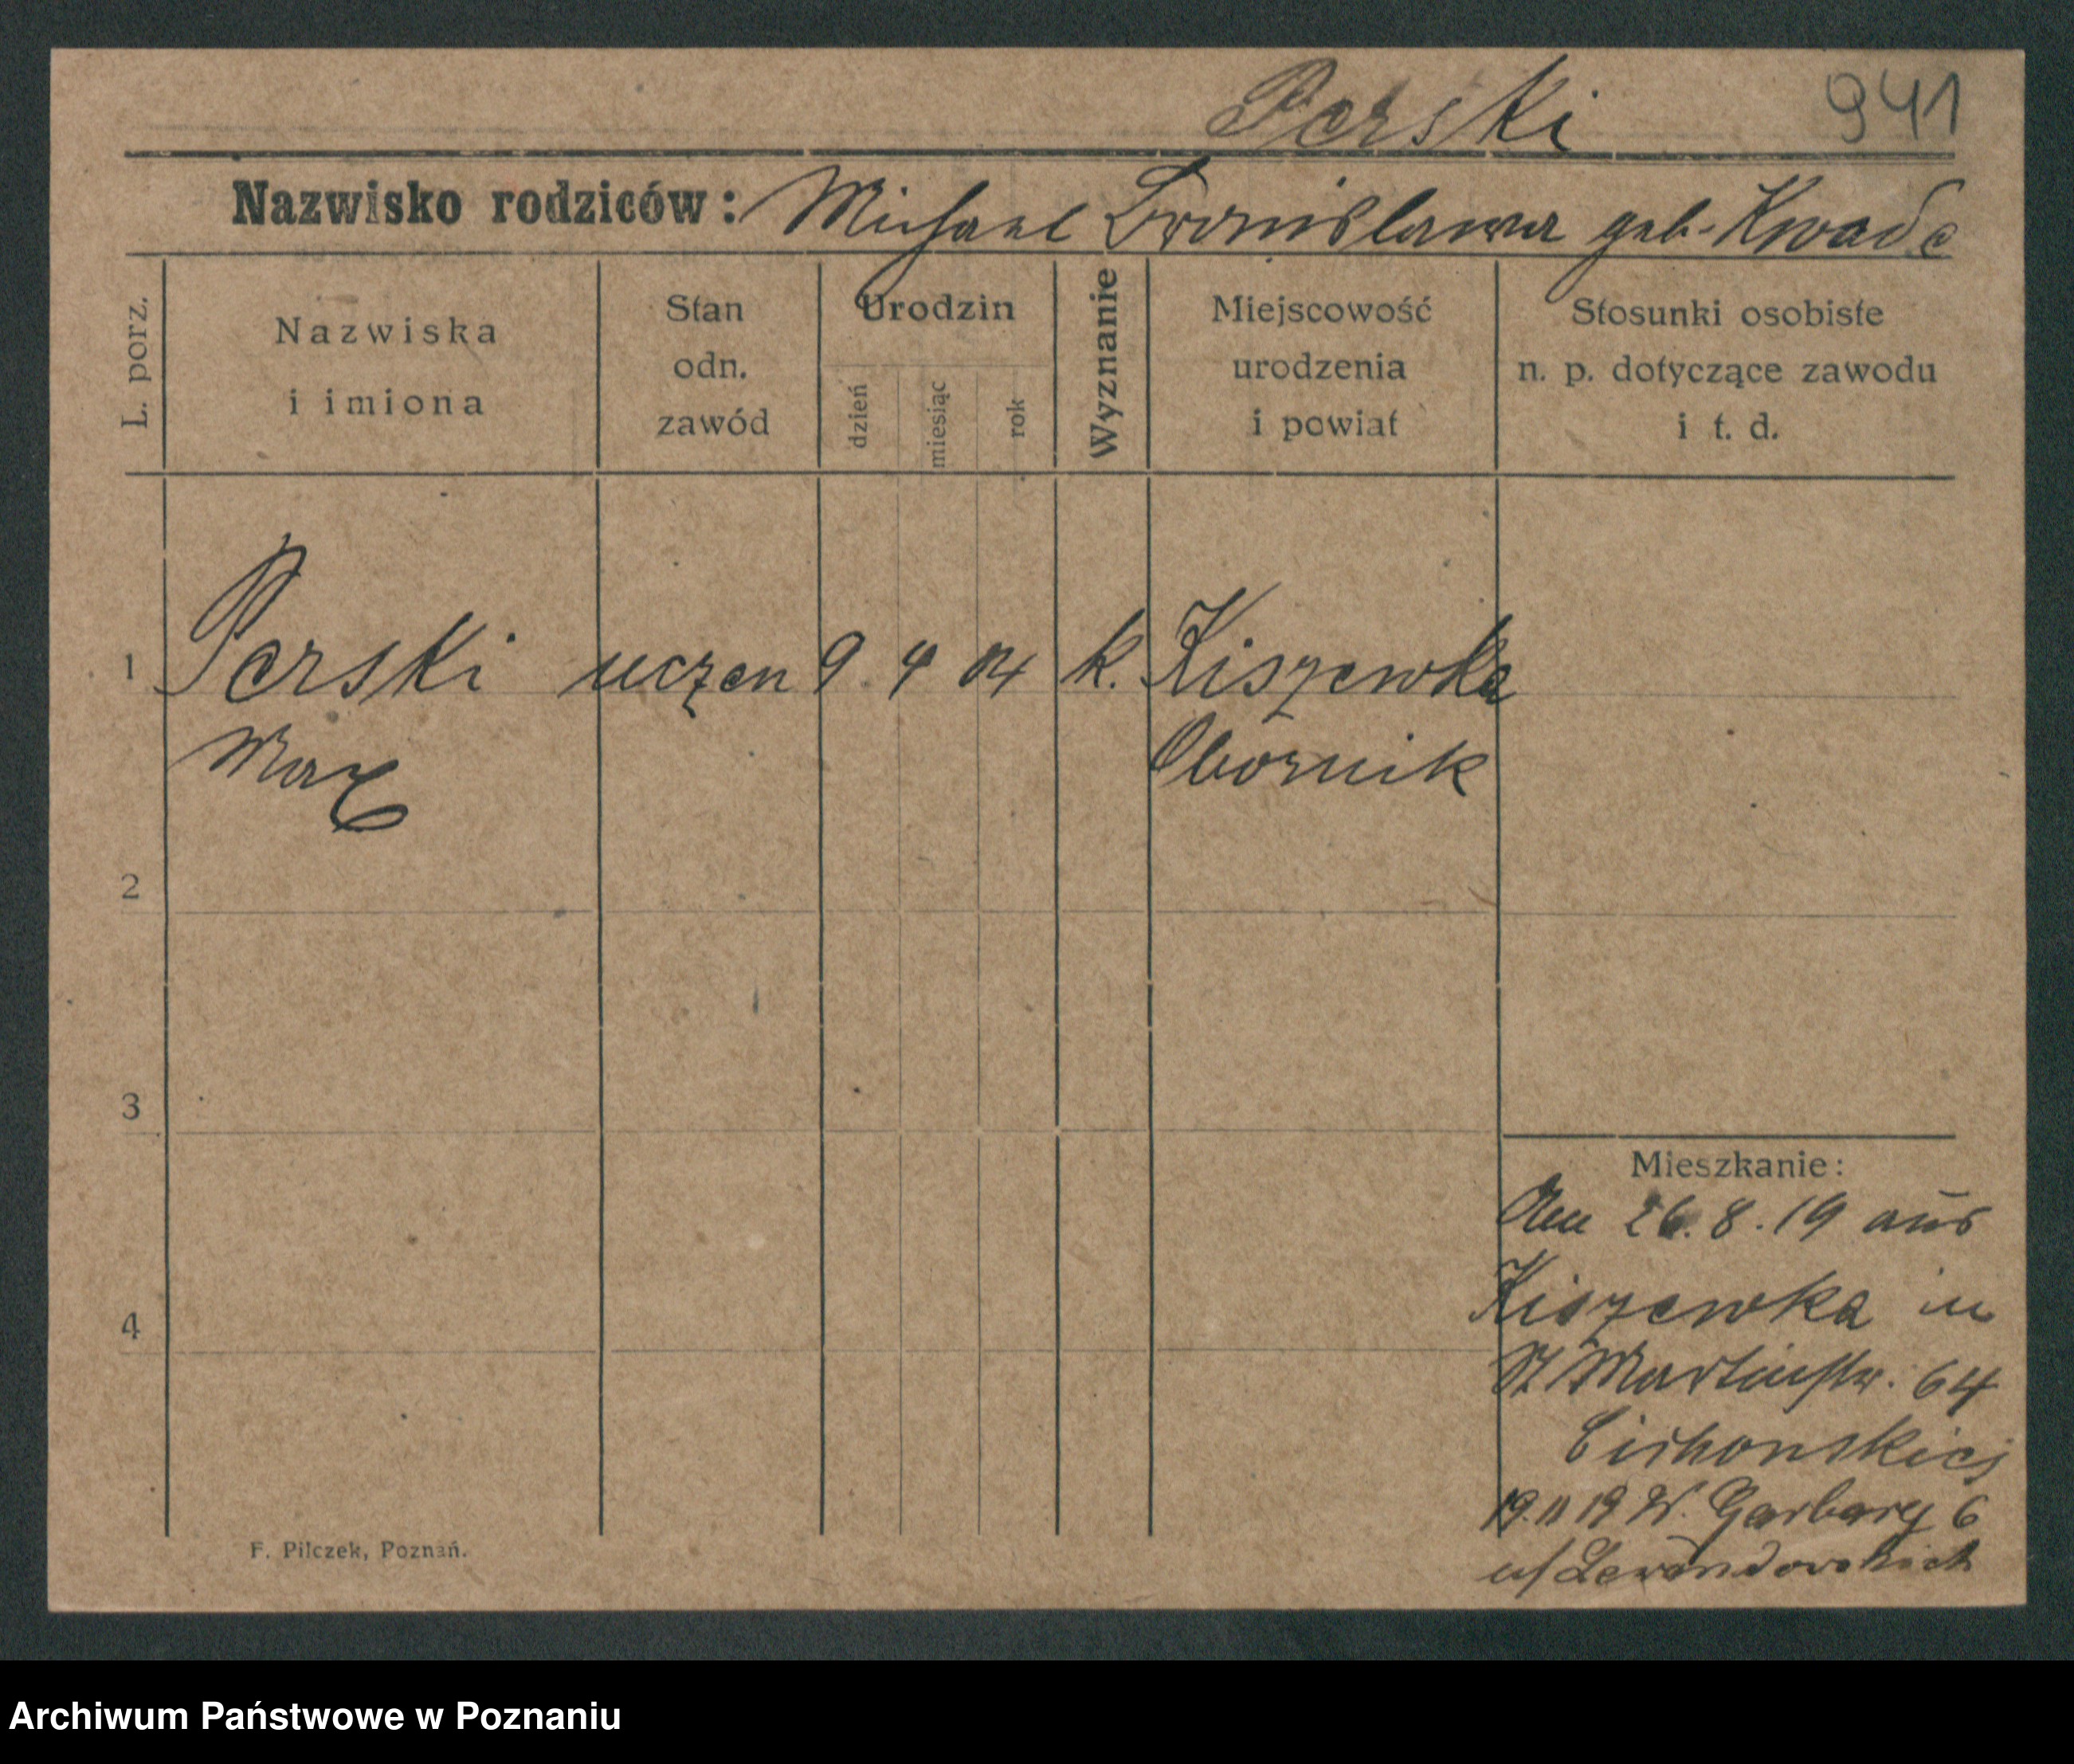 Perski 941
Nazwisko rodziców: Michael Bronislawa geb. Kwade
L. porz.
Nazwiska
i imiona
Stan
odn.
zawód
Urodzin
dzień
miesiąc
rok
Wyznanie
Miejscowość
urodzenia
i powiat
Stosunki osobiste
n. p. dotyczące zawodu
i t. d.
1 Perski uczen 9 4 04 k. Kiszewka
Max Obornik
2
3
4
Mieszkanie:
26.8.19 aus
Kiszewka in
St Martinstr. 64
Cichonskiej
19.11 19 W. Garbary 6
u/ Lewandowskich
F. Pilczek, Poznań.
Archiwum Państwowe w Poznaniu